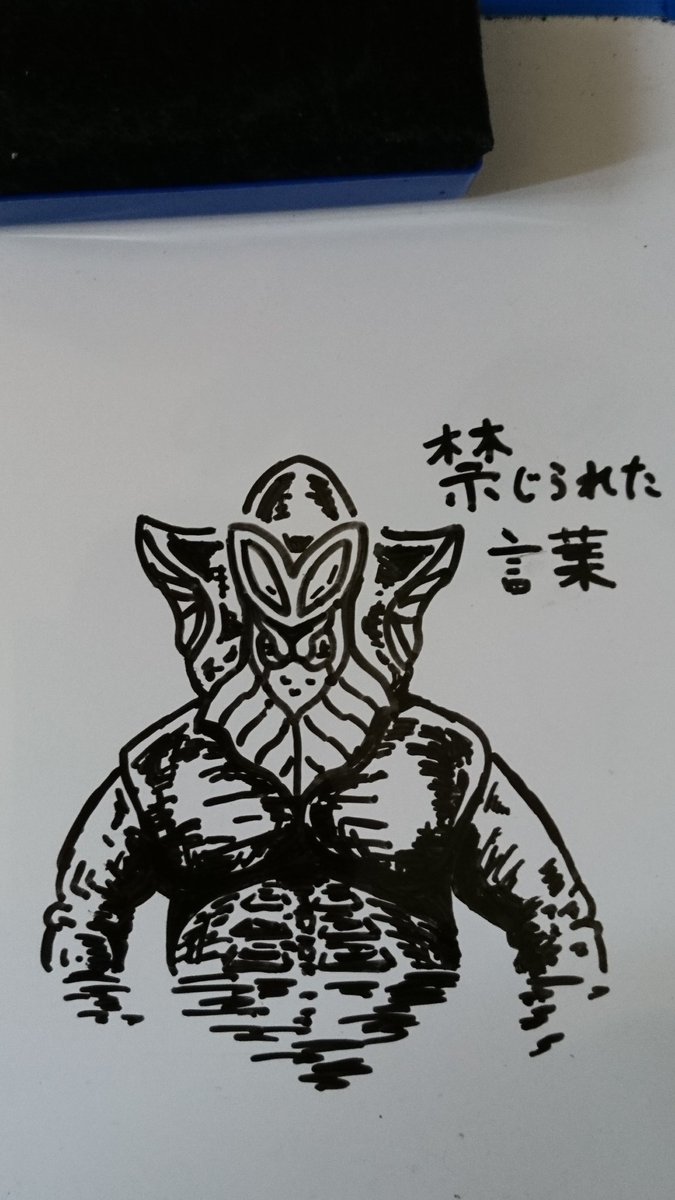 禁じられた
言葉